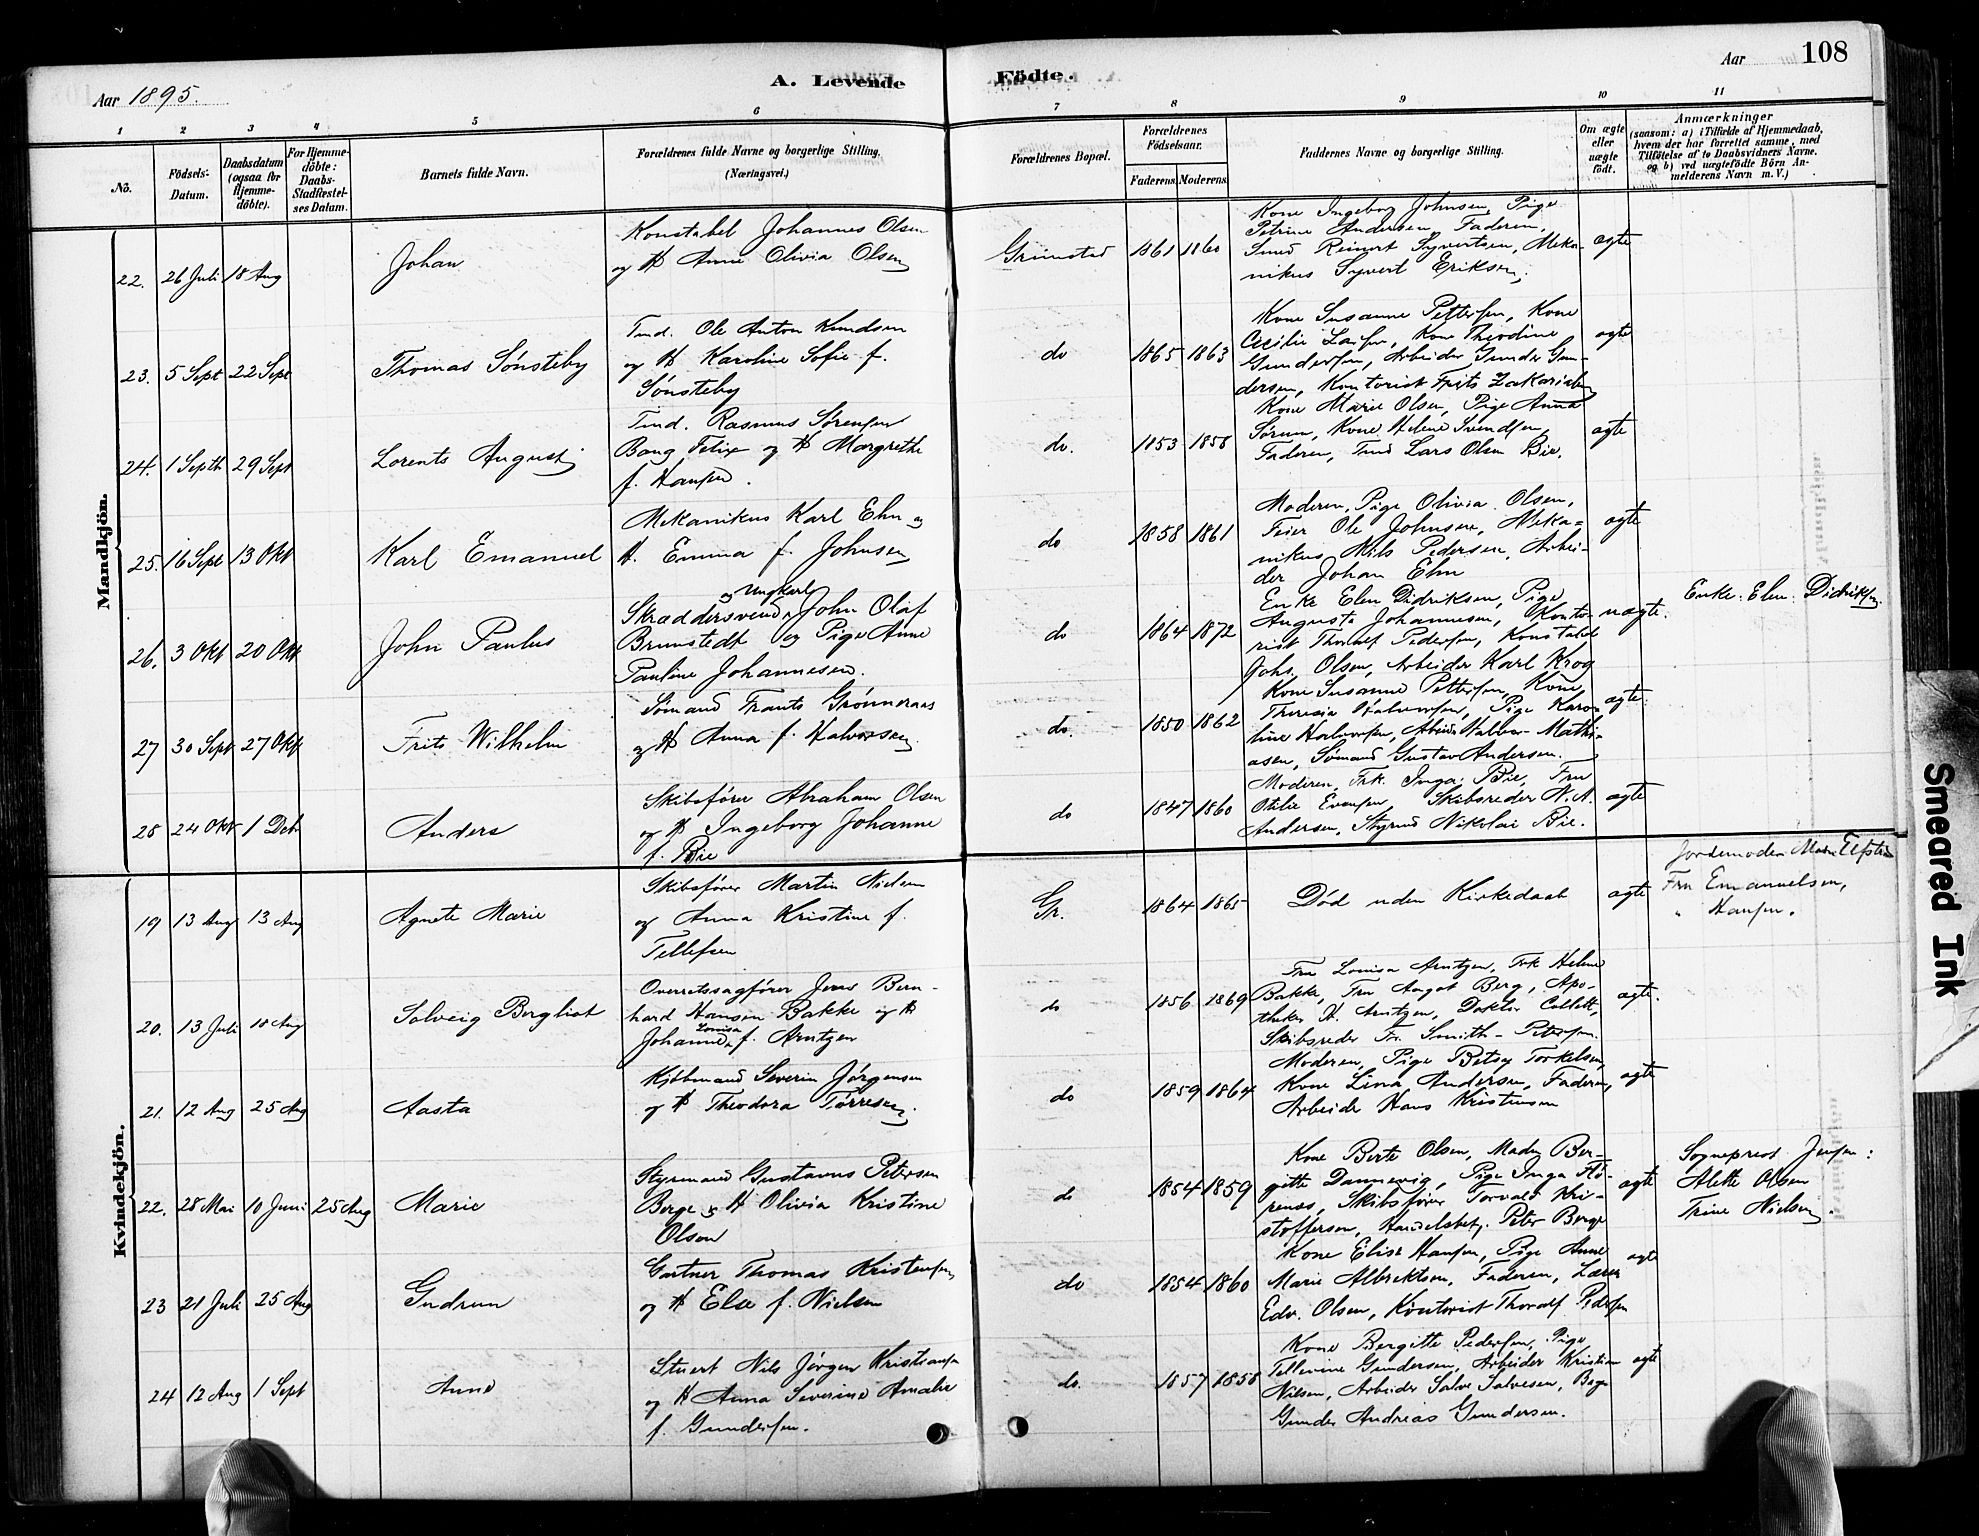 Aar 1895.
A. Levende
Födte.
Aar
108
1 2 3 4 5 6 7 8 9 10 11
No.
Födsels-Datum.
Daabsdatum (ogsaa for Hjemme-döbte).
For Hjemme-döbte: Daabs-Stadfæstel-ses Datum.
Barnets fulde Navn.
Forældrenes fulde Navne og borgerlige Stilling.
(Næringsvei.)
Forældrenes Bopæl.
Forældrenes Födselsaar.
Faderens. Moderens.
Faddernes Navne og borgerlige Stilling.
Om ægte eller uægte födt.
Anmærkninger
(saasom: a) i Tilfælde af Hjemmedaab,
hvem der har forrettet samme, med
Tilföielse af to Daabsvidners Navne.
og b) ved uægtefödte Börn An-
melderens Navn m. V.)
Mandkjön.
22. 26 Juli 18 Aug
Johan
Konstabel Johannes Olsen
og H Anne Olivia Olsen
Grimstad 1861 1860
Kone Ingeborg Johnsen, Pige
Petrine Andersen, Faderen,
Smed Reinert Syvertsen, Meka-
nikus Syvert Eriksen.
ægte
23. 5 Sept 22 Sept
Thomas Sønsteby
Tmd. Ole Anton Knudsen
og H Karoline Sofie f.
Sønsteby
do 1865 1863
Kone Susanne Pettersen, Kone
Cecilie Larsen, Kone Theodine
Gundersen, Arbeider Gunder Gun-
dersen, Kontorist Frits Zakariasen
ægte
24. 1 Septb 29 Sept
Lorents August
Tmd. Rasmus Sørensen
Bang Felix og H Margrethe
f. Hansen.
do. 1853 1858
Kone Marie Olsen, Pige Anna
Sørum, Kone Helene Svendsen,
Faderen, Tmd Lars Olsen Bie.
ægte
25. 16 Sept 13 Okt
Karl Emanuel
Mekanikus Karl Ehn og
H. Emma f. Johnsen
do 1858 1861
Moderen, Pige Olivia Olsen,
Feier Ole Johnsen, Meka-
nikus Nils Pedersen, Arbei-
der Johan Ehn
ægte
26. 3 Okt 20 Okt
John Paulus
Ungkarl
Skræddersvend John Olaf
Brunstedt og Pige Anne
Pauline Johannesen.
do 1864 1872
Enke Elen Didriksen, Pige
Augusta Johannesen, Konto-
rist Thoralf Pedersen, Konstabel
Johs. Olsen, Arbeider Karl Krog
uægte.
Enke: Elen Didriksen
27 30 Sept 27 Okt
Frits Wilhelm
Sømand Frants Grønneraas
og H Anna f. Halvorsen.
do. 1850 1862
Kone Susanne Pettersen, Kone
Theresia Halvorsen, Pige Karo-
line Halvorsen, Arbeid. Halvor Mathi-
asen, Sømand Gustav Andersen.
ægte.
28 24 Okt 1 Deb
Anders
Skibsfører Abraham Olsen
og H Ingeborg Johanne
f. Bie
do 1847 1860
Moderen, Frk. Inga Bie, Fru
Otilie Evensen, Skibsreder N. A.
Andersen, Styrmd Nikolai Bie.
ægte
Kvindekjön.
19 13 Aug 13 Aug
Agnete Marie
Skibsfører Martin Nielsen
og Anna Kristine f.
Tellefsen
Gr. 1864 1865
Død uden Kirkedaab
ægte
Jordemoder Marie
Fru Emanuelsen,
" Hansen.
20. 13 Juli 18 Aug
Solveig Bergliot
Overretssagfører Jens Bern-
hard Hansen Bakke og H
Johanne Louisa f. Arntzen
do 1856 1869
Fru Louisa Arntzen, Frk Helene
Bakke, Fru Aagot Berg, Apo-
theker H. Arntzen, Doktor Collett,
Skibsreder Fr. Smith-Petersen.
ægte.
21. 12 Aug 25 Aug
Aasta
Kjøbmand Severin Jørgensen
og H Theodora Tørresen.
do 1859 1864
Moderen, Pige Betsy Torkelsen,
Kone Lina Andersen, Faderen,
Arbeider Hans Kristensen
ægte
22. 28 Mai 10 Juni 25 Aug
Marie
Styrmand Gustavus Petersen
Berge og H Olivia Kristine
Olsen
do 1854 1859
Kone Berte Olsen, Mad. Ber-
gitte Dannevig, Pige Inga
Skibsfører Torvald Kri-
stoffersen, Handelsbetj. Peter Berge
ægte
Sogneprest Jensen:
Alette Olsen
Trine Nielsen.
23 21 Juli 25 Aug
Gudrun
Gartner Thomas Kristensen
og H Else f. Nielsen
do 1854 1860
Kone Elise Hansen, Pige Anne
Marie Albrektsen, Faderen, Lærer
Edv. Olsen, Kontorist Thoralf Pedersen
ægte
24 12 Aug 1 Sept
Anne
Stuert Nils Jørgen Kristiansen
og H Anna Severine Amalie
f. Gundersen.
do. 1857 1858
Kone Bergitte Pedersen, Pige
Tellevine Gundersen, Arbeider Kristian
Nilsen, Arbeider Salve Salvesen,
Gunder Andreas Gundersen.
ægte
Smeared Ink